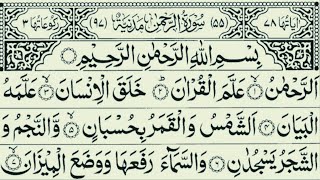 اٰیاتھا ۷۸ (۵۵) سُوْرَۃُ الرَّحْمٰنِ مَدَنِیَّۃٌ (۹۷) رکوعاتھا ۳
بِسْمِ اللّٰہِ الرَّحْمٰنِ الرَّحِیْمِ
اَلرَّحْمٰنُ ۙ﴿۱﴾ عَلَّمَ الْقُرْاٰنَ ؕ﴿۲﴾ خَلَقَ الْاِنْسَانَ ۙ﴿۳﴾ عَلَّمَہُ
الْبَیَانَ ﴿۴﴾ اَلشَّمْسُ وَ الْقَمَرُ بِحُسْبَانٍ ﴿۵﴾ وَّ النَّجْمُ وَ
الشَّجَرُ یَسْجُدٰنِ ﴿۶﴾ وَ السَّمَآءَ رَفَعَہَا وَ وَضَعَ الْمِیْزَانَ ۙ﴿۷﴾